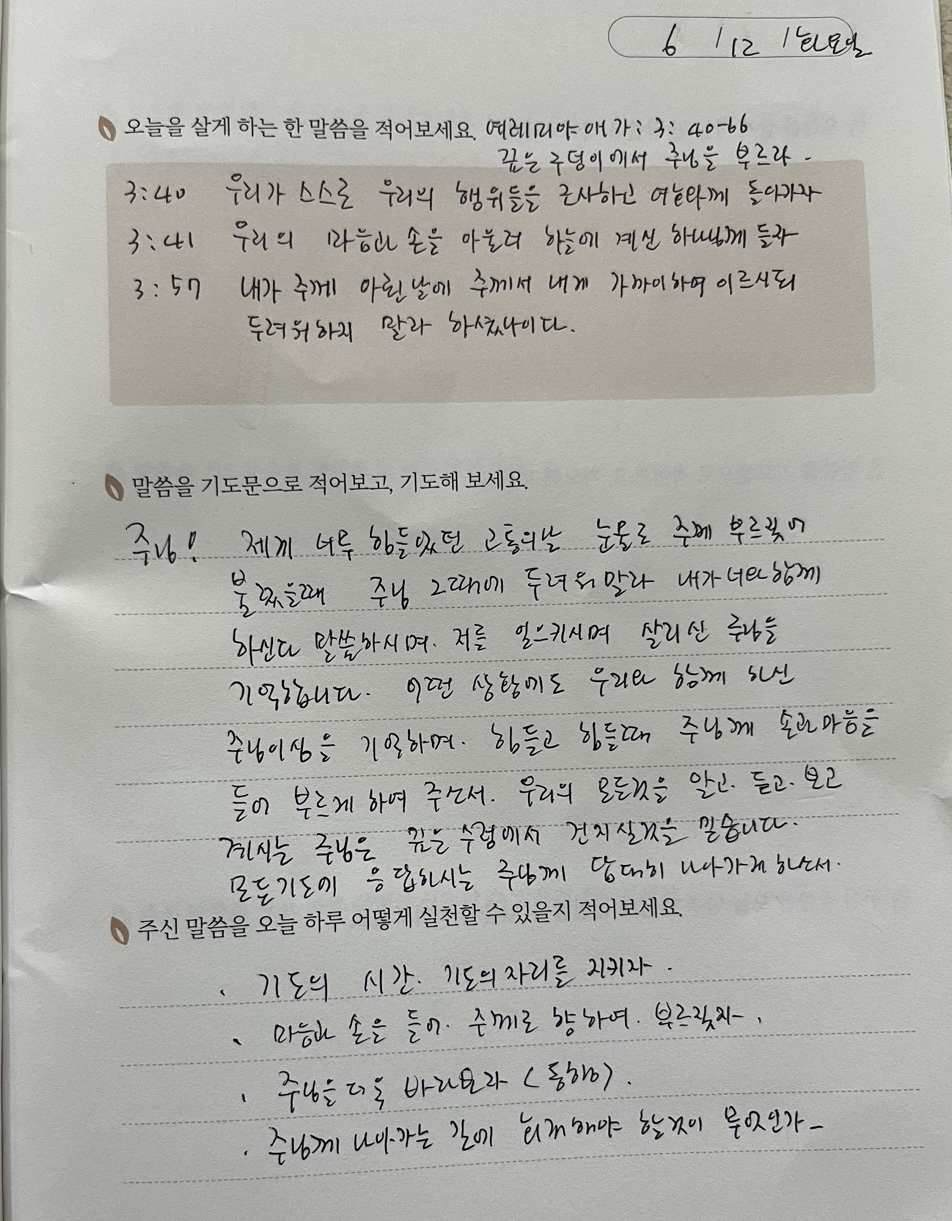 6 / 12 / 화요일
오늘을 살게 하는 한 말씀을 적어보세요. 예레미야 애가 : 3 : 40-66
깊은 구덩이에서 주님을 부르라 -
3:40 우리가 스스로 우리의 행위들을 조사하고 여호와께 돌아가자
3:41 우리의 마음과 손을 아울러 하늘에 계신 하나님께 들자
3:57 내가 주께 아뢴 날에 주께서 내게 가까이하여 이르시되
두려워하지 말라 하셨나이다.
말씀을 기도문으로 적어보고, 기도해 보세요.
주님! 제가 너무 힘들었던 고통의날 눈물로 주께 부르짖어
때 주님 그때에 두려워말라 내가 너와 함께
하신다 말씀하시며. 저를 일으키시며 살리신 주님을
기억합니다. 어떤 상황에도 우리와 함께 하신
주님이심을 기억하며. 힘들고 힘들때 주님께 손과마음을
들어 부르게 하여 주소서. 우리의 모든것을 알고. 듣고. 보고
계시는 주님은 깊은 수렁에서 건지실것을 믿습니다.
모든기도에 응답하시는 주님께 담대히 나아가게 하소서.
주신 말씀을 오늘 하루 어떻게 실천할 수 있을지 적어보세요.
· 기도의 시간. 기도의자리를 지키자.
· 마음과 손을 들어. 주께로 향하여. 부르짖자.
· 주님을 더욱 바라보라 < >.
· 주님께 나아가는 길에 회개해야 할것이 무엇인가 -